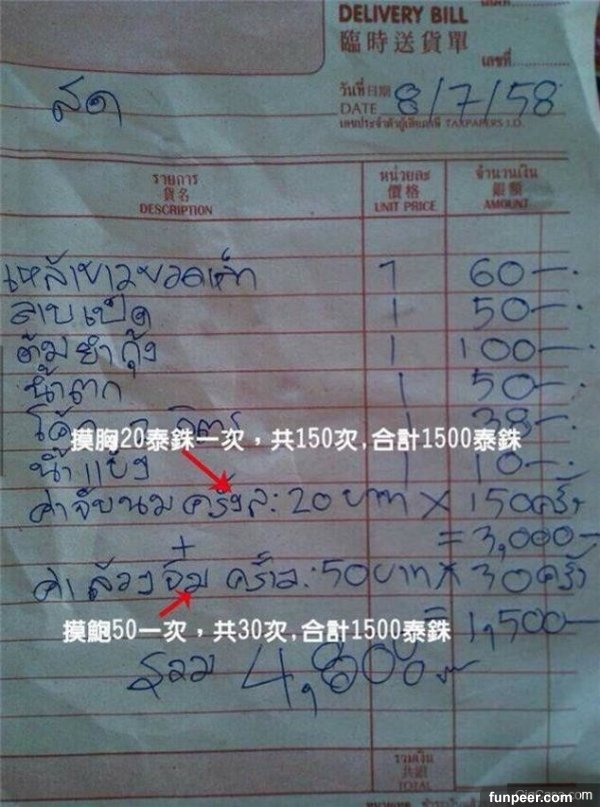 DELIVERY BILL
臨時送貨單
เลขที่
วันที่ 日期
DATE 8/7/58
เลขประจำตัวผู้เสียภาษี TAXPAYERS I.D.
สด
รายการ หน่วยละ จำนวนเงิน
貨名 價格 銀額
DESCRIPTION UNIT PRICE AMOUNT
เหล้าขาวขวดเล็ก 1 60-.
ลาบเป็ด 1 50-.
ต้มยำกุ้ง 1 100-.
น้ำตก 1 50-.
โค้ก ลิตร 1 38-.
摸胸20泰銖一次，共150次,合計1500泰銖
น้ำแข็ง 1 10-.
ค่าจับนม ครั้งล:20 บาท x 150ครั้ง
+ = 3,000-
ค่าล้วงจิ๋ม ครั้งล:50บาท x 30ครั้ง
摸鮑50一次，共30次,合計1500泰銖
= 1,500-
รวม 4,808
รวมเงิน
共銀
TOTAL
funpeer.com